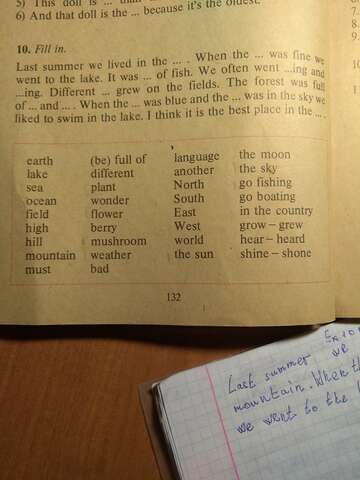 5) This doll is ... than
6) And that doll is the ... because it's the oldest.
10. Fill in.
Last summer we lived in the ... . When the ... was fine we
went to the lake. It was ... of fish. We often went ...ing and
...ing. Different ... grew on the fields. The forest was full
of ... and ... . When the ... was blue and the ... was in the sky we
liked to swim in the lake. I think it is the best place in the ... .
earth (be) full of language the moon
lake different another the sky
sea plant North go fishing
ocean wonder South go boating
field flower East in the country
high berry West grow – grew
hill mushroom world hear – heard
mountain weather the sun shine – shone
must bad
132
7.
8.
9.
Last summer we
mountain. When th
we went to the